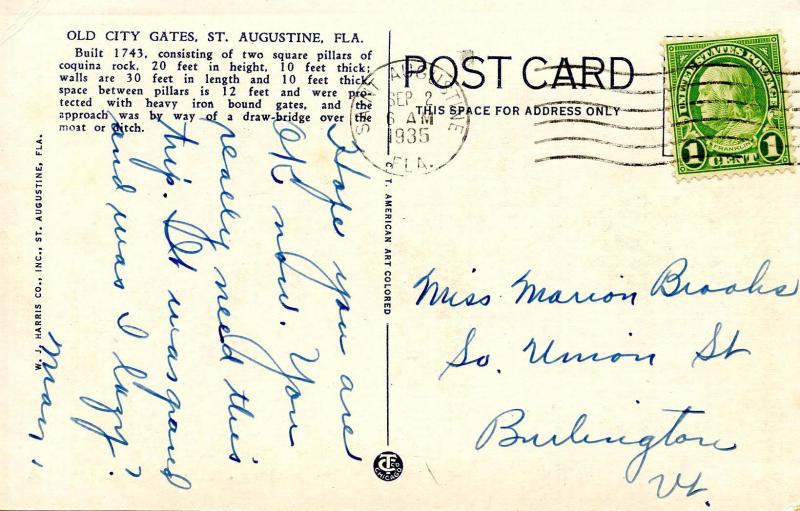 OLD CITY GATES, ST. AUGUSTINE, FLA.
Built 1743, consisting of two square pillars of
coquina rock, 20 feet in height, 10 feet thick;
walls are 30 feet in length and 10 feet thick
space between pillars is 12 feet and were pro-
tected with heavy iron bound gates, and the
approach was by way of a draw-bridge over the
moat or ditch.
Hope you are
OK now. You
really need this
trip. It was grand
and was I lazy?
W. J. HARRIS CO., INC., ST. AUGUSTINE, FLA.
C. T. AMERICAN ART COLORED
CHICAGO
POST CARD
THIS SPACE FOR ADDRESS ONLY
SAINT AUGUSTINE
SEP 2
6 AM
1935
FLA.
UNITED STATES POSTAGE
FRANKLIN
1 CENT 1
Miss Marion Brooks
So. Union St
Burlington
Vt.